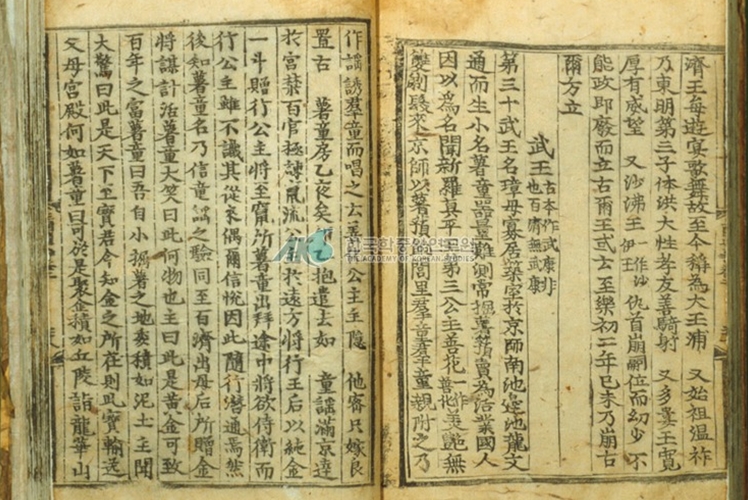 濟王每遊宴歌舞故至今稱為大王浦 又始祖溫祚
乃東明第三子体洪大性孝友善騎射 又多婁王寬
厚有威望 又沙沸王一作沙伊王 仇首崩嗣位而幼少不
能政即廢而立古爾王或云至樂初二年己未乃崩古
爾方立
武王古本作武康非也百濟無武康
第三十武王名璋母寡居築室於京師南池邊池龍交
通而生小名薯童器量難測常掘薯蕷賣為活業國人
因以為名聞新羅真平王第三公主善花一作善化美艶無
雙剃髮來京師以薯蕷餉閭里羣童羣童親附之乃
作謠誘羣童而唱之云善化公主主隱 他密只嫁良
置古 薯童房乙夜矣卯乙抱遣去如 童謠滿京達
於宮禁百官極諫竄流公主於遠方將行王后以純金
一斗贈行公主將至竄所薯童出拜途中將欲侍衛而
行公主雖不識其從來偶爾信悅因此隨行潜通焉然
後知薯童名乃信童謠之驗同至百濟出母后所贈金
將謀計活薯童大笑曰此何物也主曰此是黃金可致
百年之富薯童曰吾自小掘薯之地委積如泥土主聞
大驚曰此是天下至寶君今知金之所在則此寶輸送
父母宮殿何如薯童曰可於是聚金積如丘陵詣龍華山
한국학중앙연구원
THE ACADEMY OF KOREAN STUDIES